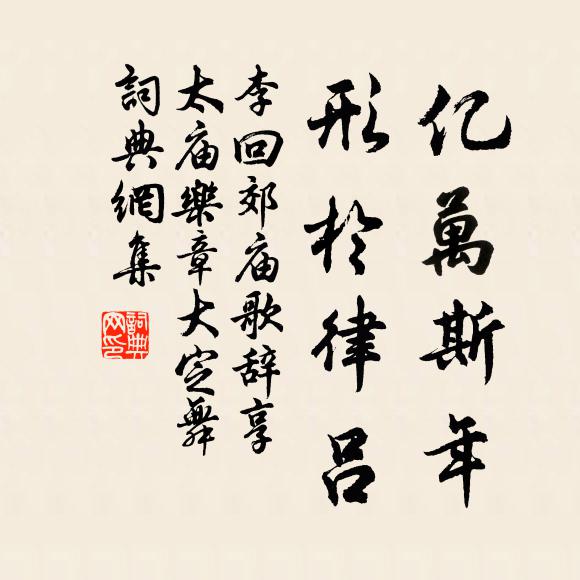 亿萬斯年
形於律吕
李回郊庙歌辞享
太庙樂章大定舞
詞典網集
詞典
网印